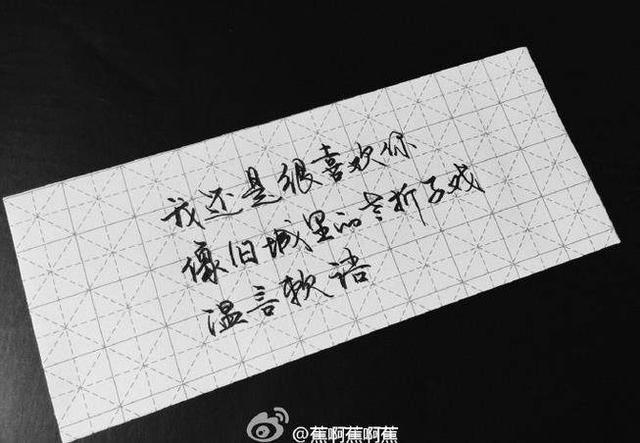 我还是很喜欢你
像旧城里的老折子戏
温言软语
@蕉啊蕉啊蕉